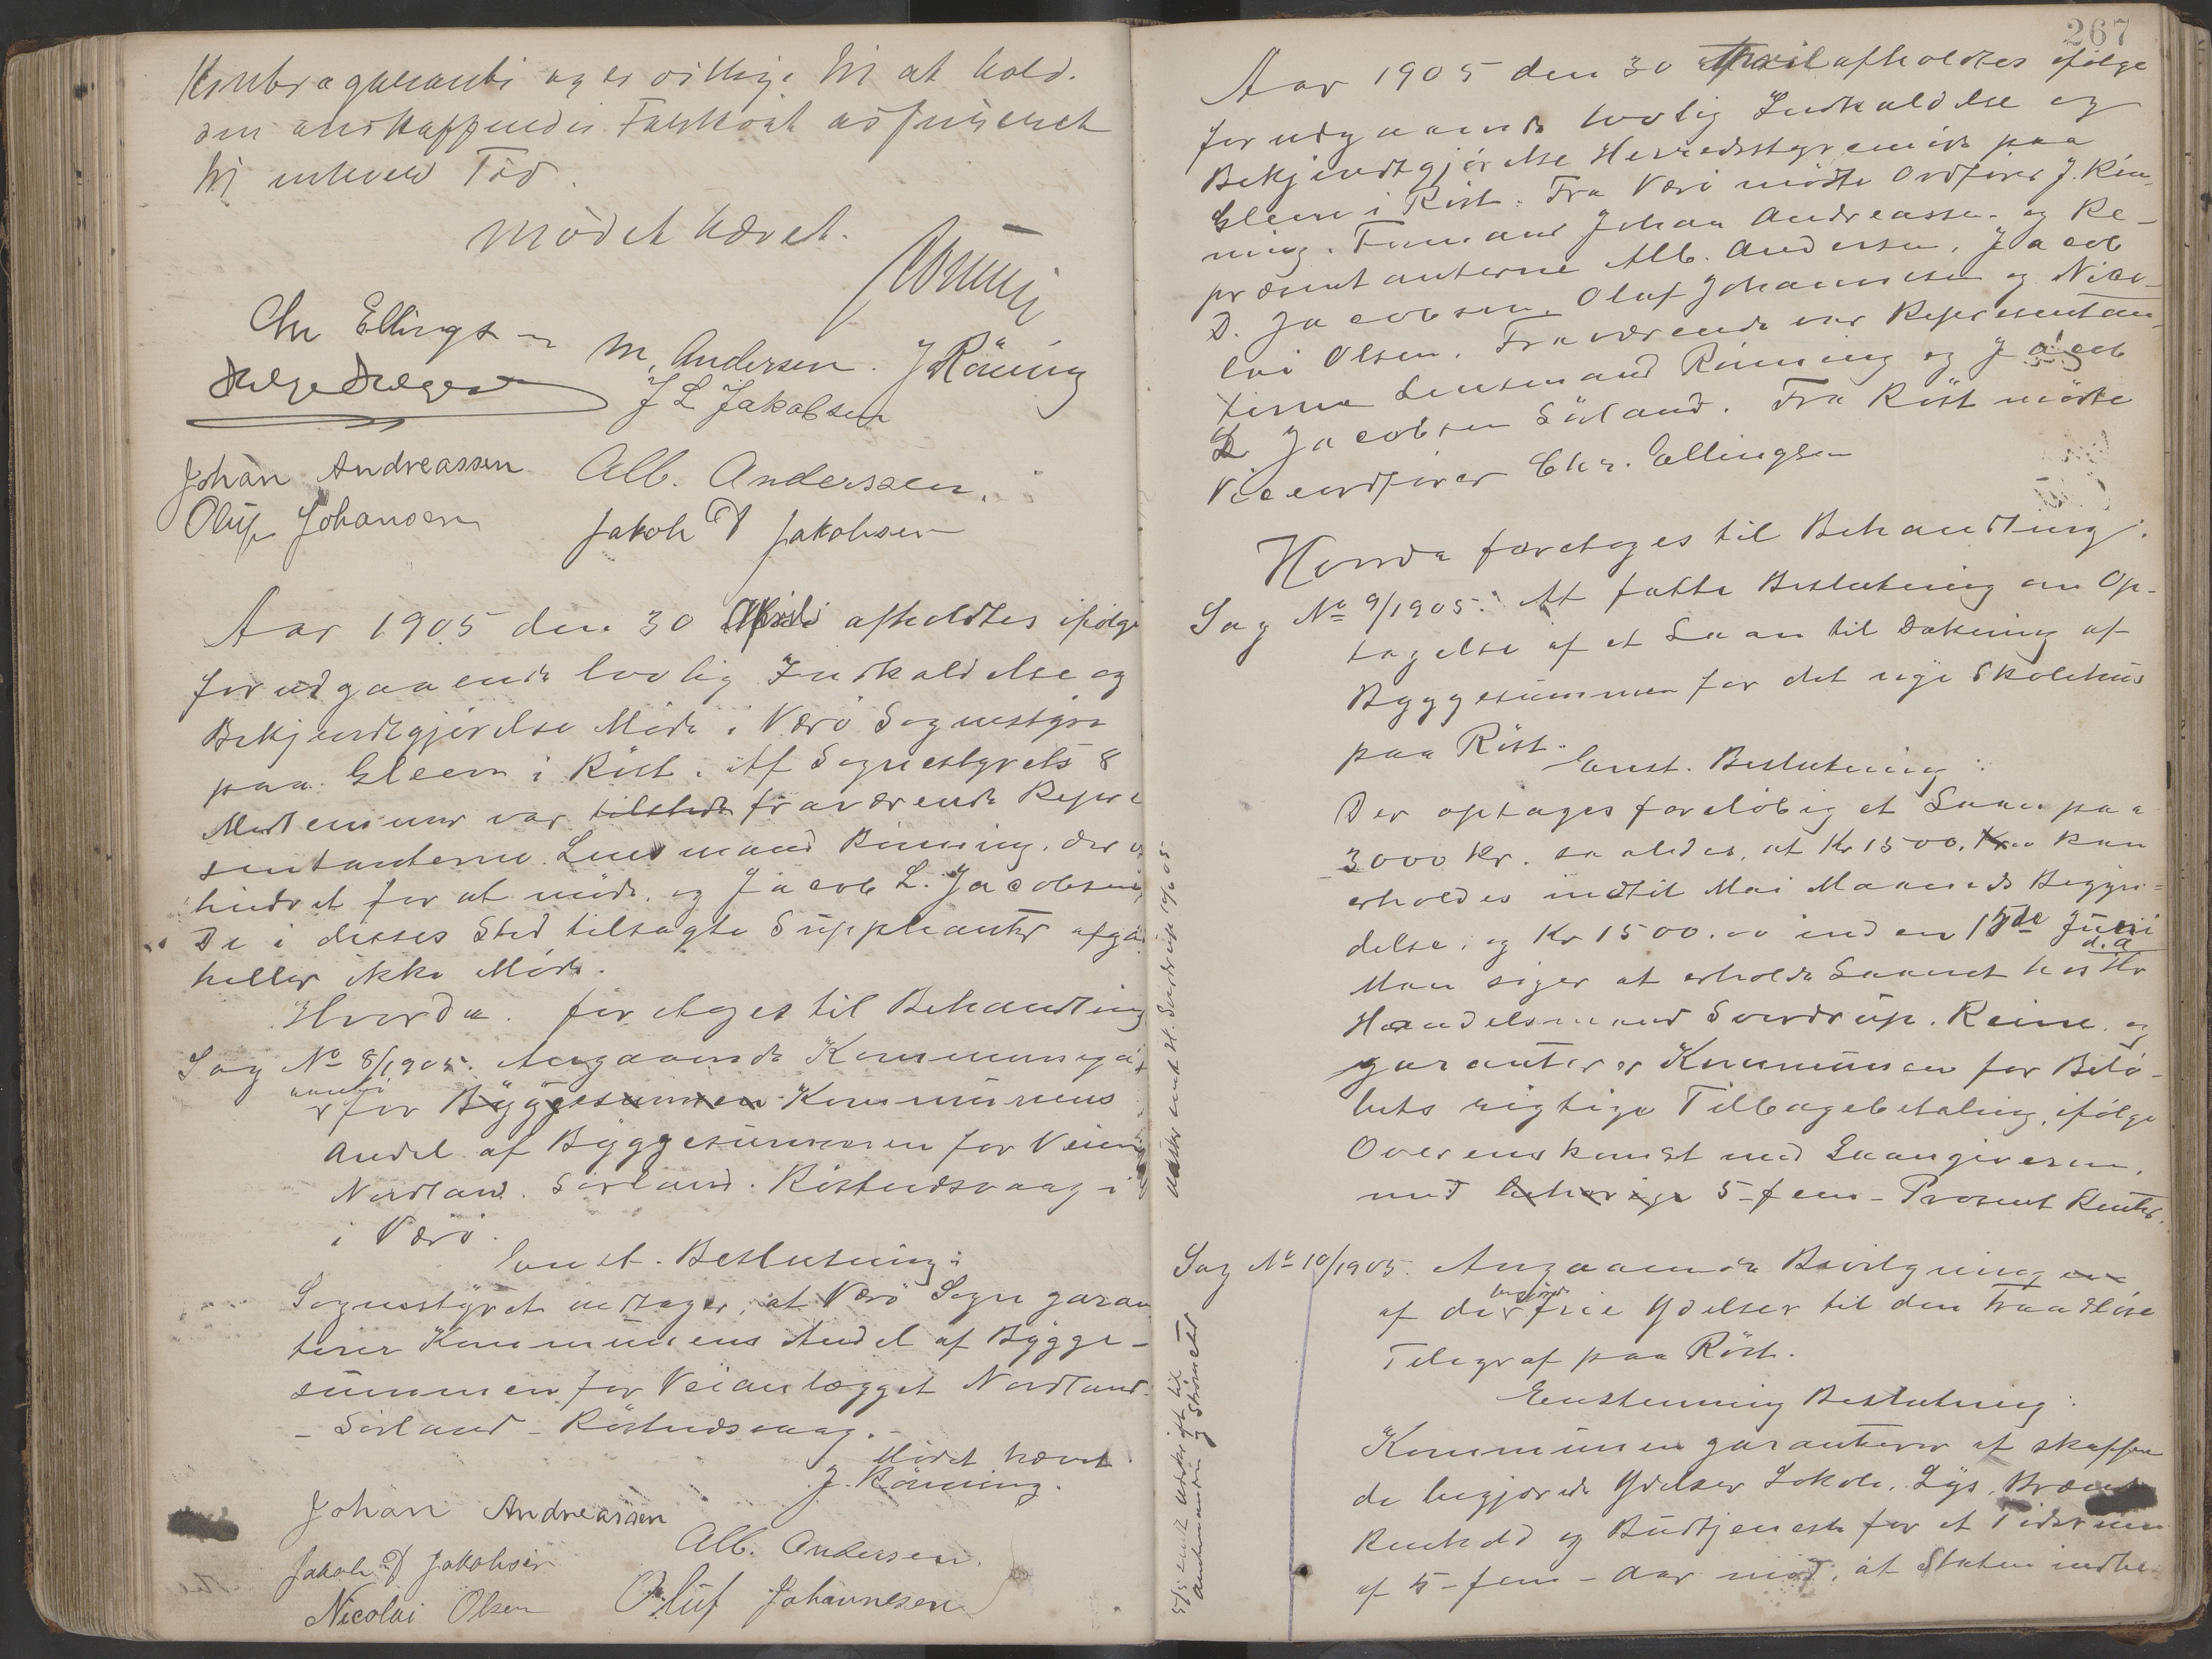 og er villige til at hold.
den anskaffendes Farkost
til enhver Tid.
Mödet hævet.
Chr Ellingsen
M. Andersen. J Röning
J L Jakobsen
Johan Andreassen Alb. Anderssen.
Oluf Johansen Jakob D Jakobsen
Aar 1905 den 30 April afholdtes ifölge
forudgaaende lovlig Indkaldelse og
Bekjendtgjörelse Möde i Værö Sognestyre
paa Gleen i Röst. Af Sognestyrets 8
Medlemmer var tilstede fraværende Repre
sentanterne Lensmand Rönning, der
hindret for at möde, og Jacob L. Jacobsen,
De i disses Sted tilsagte Suppleanter
heller ikke Möde.
Hvorda foretoges til Behandling
Sag No 8/1905. Angaaende Kommunega
ranti
for Byggesummen Kommunens
Andel af Byggesummen for Veien
Nordland. Sörland. Röstnesvaag
i Værö.
Enst. Beslutning:
Sognestyret vedtager, at Værö Sogn garan
terer Kommunens Andel af Bygge-
summen for Veianlægget Nordland
- Sörland - Röstnesvaag.
Mödet hævet
J. Rönning.
Johan Andreassen
Alb. Andersen.
Jakob D Jakobsen
Nicolai Olsen Oluf Johannesen
267
Aar 1905 den 30 April afholdtes ifölge
forudgaaende lovlig Indkaldelse og
Bekjendtgjörelse Herredsstyremöde paa
Gleen i Röst. Fra Værö mödte Ordförer J. Rön-
ning. Formand Johan Andreassen og Re-
præsentanterne Alb. Andersen, Jacob
D. Jacobsen, Oluf Johannesen og Nico-
lai Olsen. Fraværende var Representan-
terne Lensmand Rönning og Jacob
L Jacobsen Sörland. Fra Röst mödte
Viceordförer Chr. Ellingsen
Hvorda foretoges til Behandling:
Sag No 9/1905. At fatte Beslutning om Op-
tagelse af et Laan til Dækning af
Byggesummen for det nye Skolehus
paa Röst.
Enst. Beslutning:
Der optages foreløbig et Laan paa
3000 Kr. saaledes, at Kr 1500. kan
erholdes indtil Mai Maaneds Begyn-
delse, og Kr 1500.00 inden 15de Juni
d.a
Man siger at erholde Laanet hos Hr
Handelsmand Sverdrup. Reine, og
garanterer Kommunen for Belö-
bets rigtige Tilbagebetaling, ifölge
Overenskomst med Laangiveren,
med 5-fem-Prosent Renter.
Sag No 10/1905. Angaaende Bevilgning
begjærede
af de frie Ydelser til den Traadlöse
Telegraf paa Röst.
Enstemmig Beslutning:
Kommunen garanterer at skaffe
de begjærede Ydelser Lokale, Lys, Brænde
Renhold og Budtjeneste for et Tidsrum
af 5-fem-Aar mod, at Staten indbe-